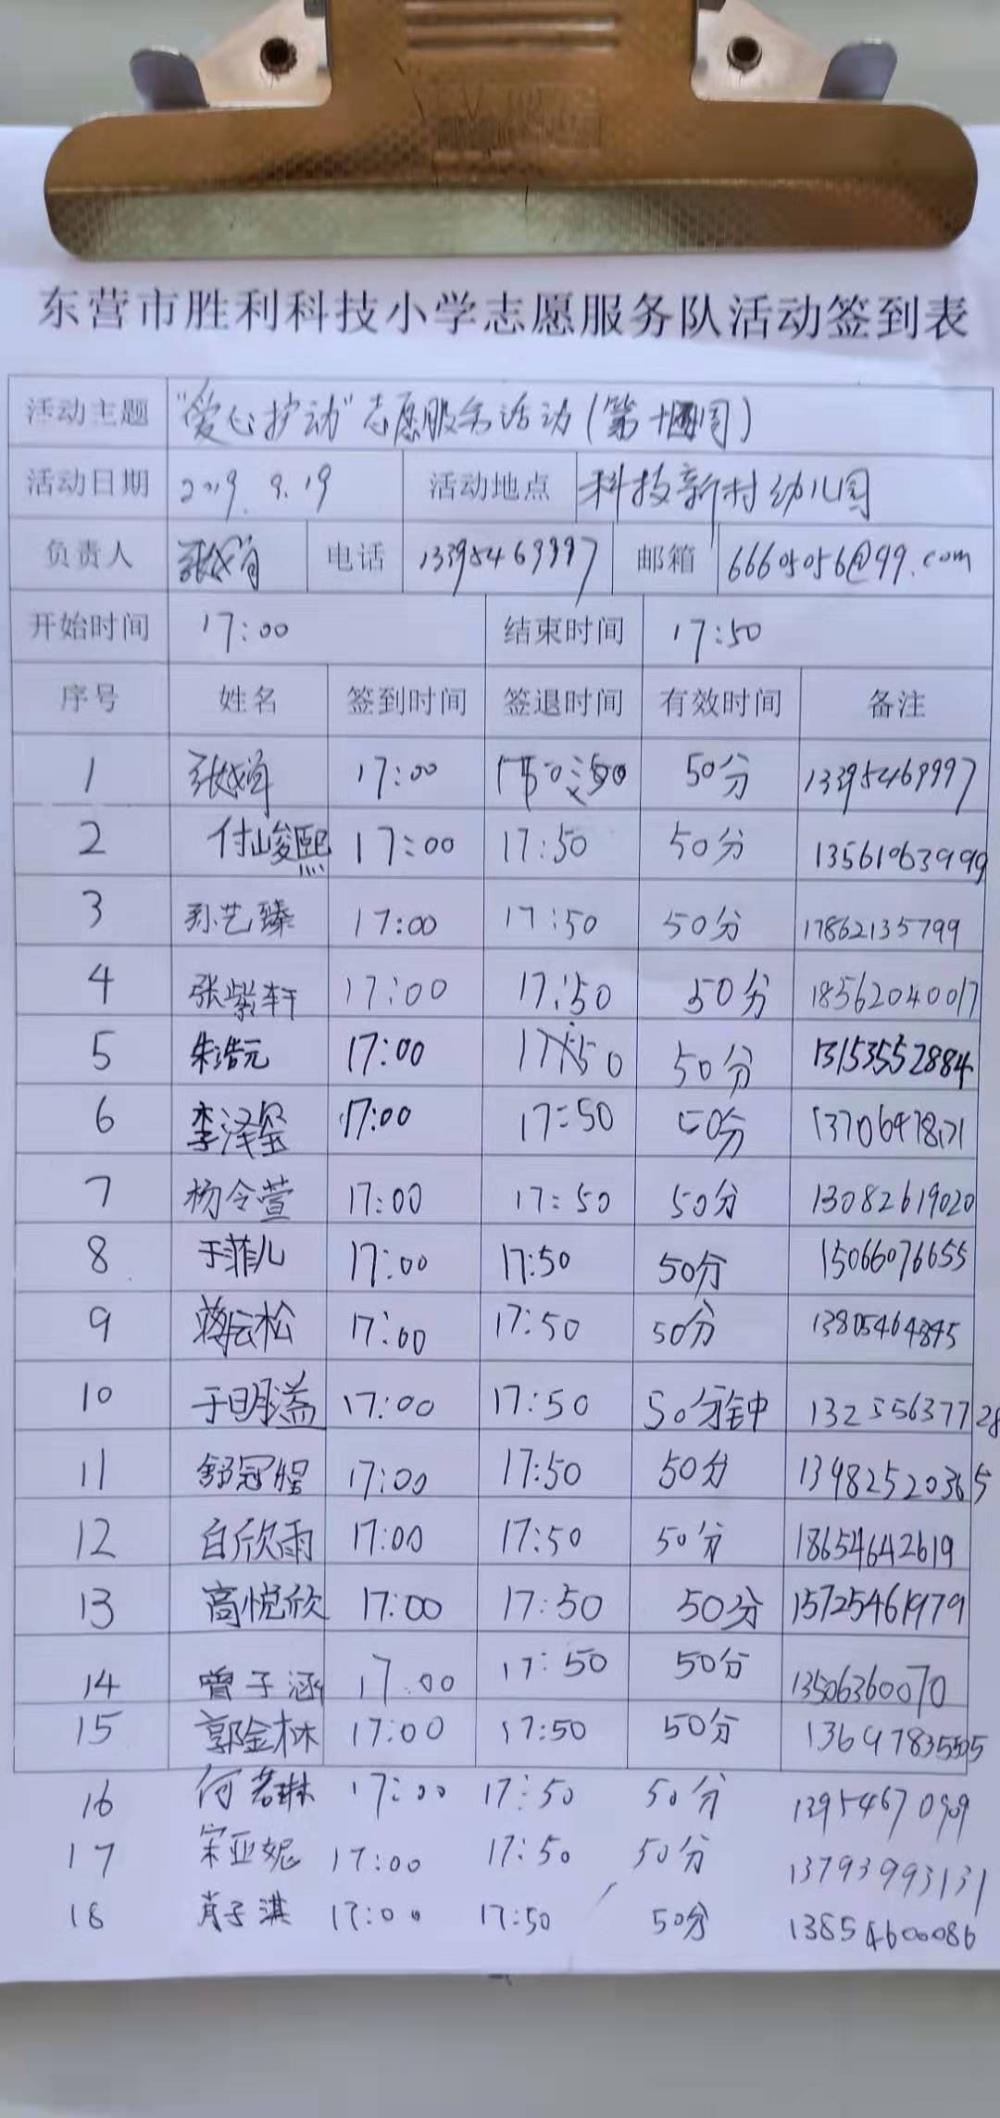 东营市胜利科技小学志愿服务队活动签到表
活动主题 "爱心护动"志愿服务活动(第十周)
活动日期 2019.9.19 活动地点 科技新村幼儿园
负责人 电话 13395469997 邮箱 66605056@qq.com
开始时间 17:00 结束时间 17:50
序号 姓名 签到时间 签退时间 有效时间 备注
1 17:00 50分 13395469997
2 付峻熙 17:00 17:50 50分 13561063999
3 孙艺臻 17:00 17:50 50分 17862135799
4 张紫轩 17:00 17:50 50分 18562040017
5 朱浩元 17:00 17:50 50分 13153552884
6 李泽玺 17:00 17:50 50分
7 杨令萱 17:00 17:50 50分 13082619020
8 于菲儿 17:00 17:50 50分 15066076655
9 蒋云松 17:00 17:50 50分 13805464845
10 于明溢 17:00 17:50 50分钟
11 舒冠惺 17:00 17:50 50分
12 白欣雨 17:00 17:50 50分 18654642619
13 高悦欣 17:00 17:50 50分 15725461979
14 曾子涵 17:00 17:50 50分 13506360070
15 郭金林 17:00 17:50 50分
16 何若琳 17:00 17:50 50分 13954670909
17 宋亚妮 17:00 17:50 50分 13793993131
18 肖子淇 17:00 17:50 50分 13854600086